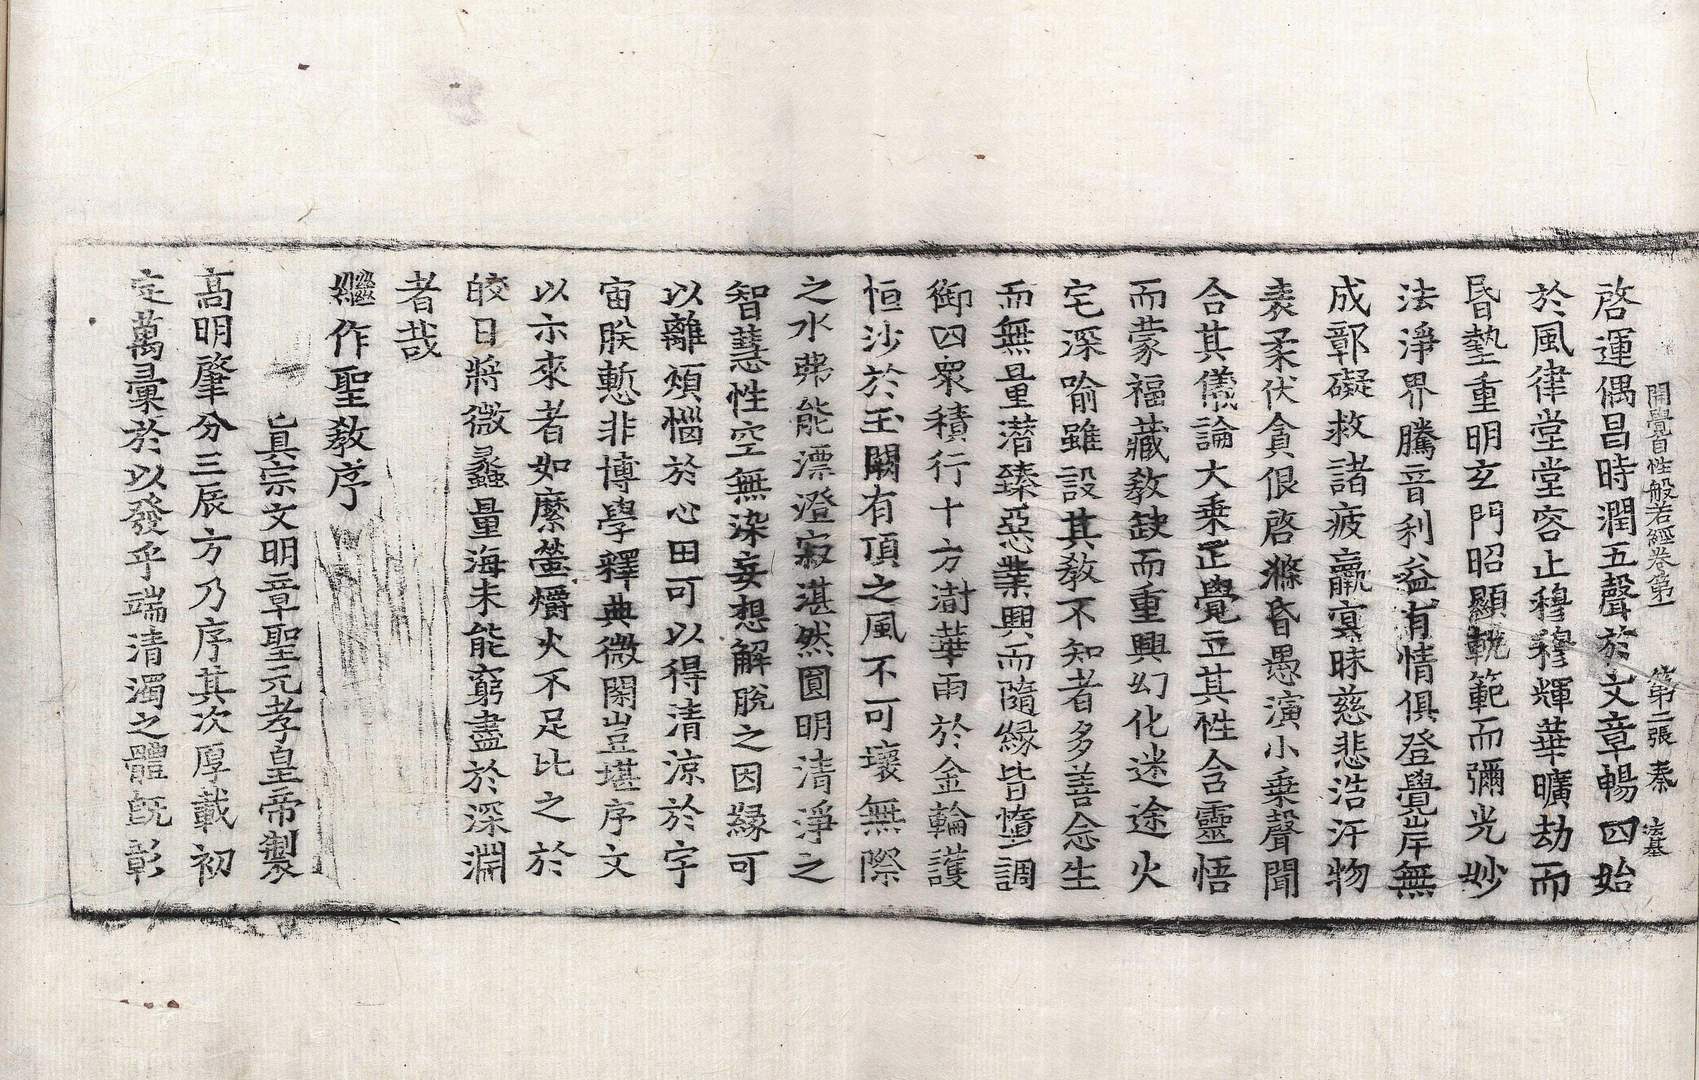 開覺自性般若經卷第一 第二張 秦 法基
啓運偶昌時潤五聲於文章暢四始
於風律堂堂容止穆穆輝華曠劫而
昏墊重明玄門昭顯軌範而彌光妙
法淨界騰音利益有情俱登覺岸無
成鄣礙救諸疲羸冥昧慈悲浩汗物
表柔伏貪佷啓滌昏愚演小乘聲聞
合其儀論大乘正覺立其性含靈悟
而蒙福藏教缺而重興幻化迷途火
宅深喻雖設其教不知者多善念生
而無量潜臻惡業興而隨緣皆墮調
御四衆積行十方澍華雨於金輪護
恒沙於玉闕有頂之風不可壞無際
之水弗能漂澄寂湛然圓明清淨之
智慧性空無染妄想解脫之因緣可
以離煩惱於心田可以得清涼於宇
宙朕慙非博學釋典微閑豈堪序文
以示來者如縻螢爝火不足比之於
皎日將微蠡量海未能窮盡於深淵
者哉
繼作聖教序
真宗文明章聖元孝皇帝製
高明肇分三辰方乃序其次厚載初
定萬彙於以發乎端清濁之體旣彰